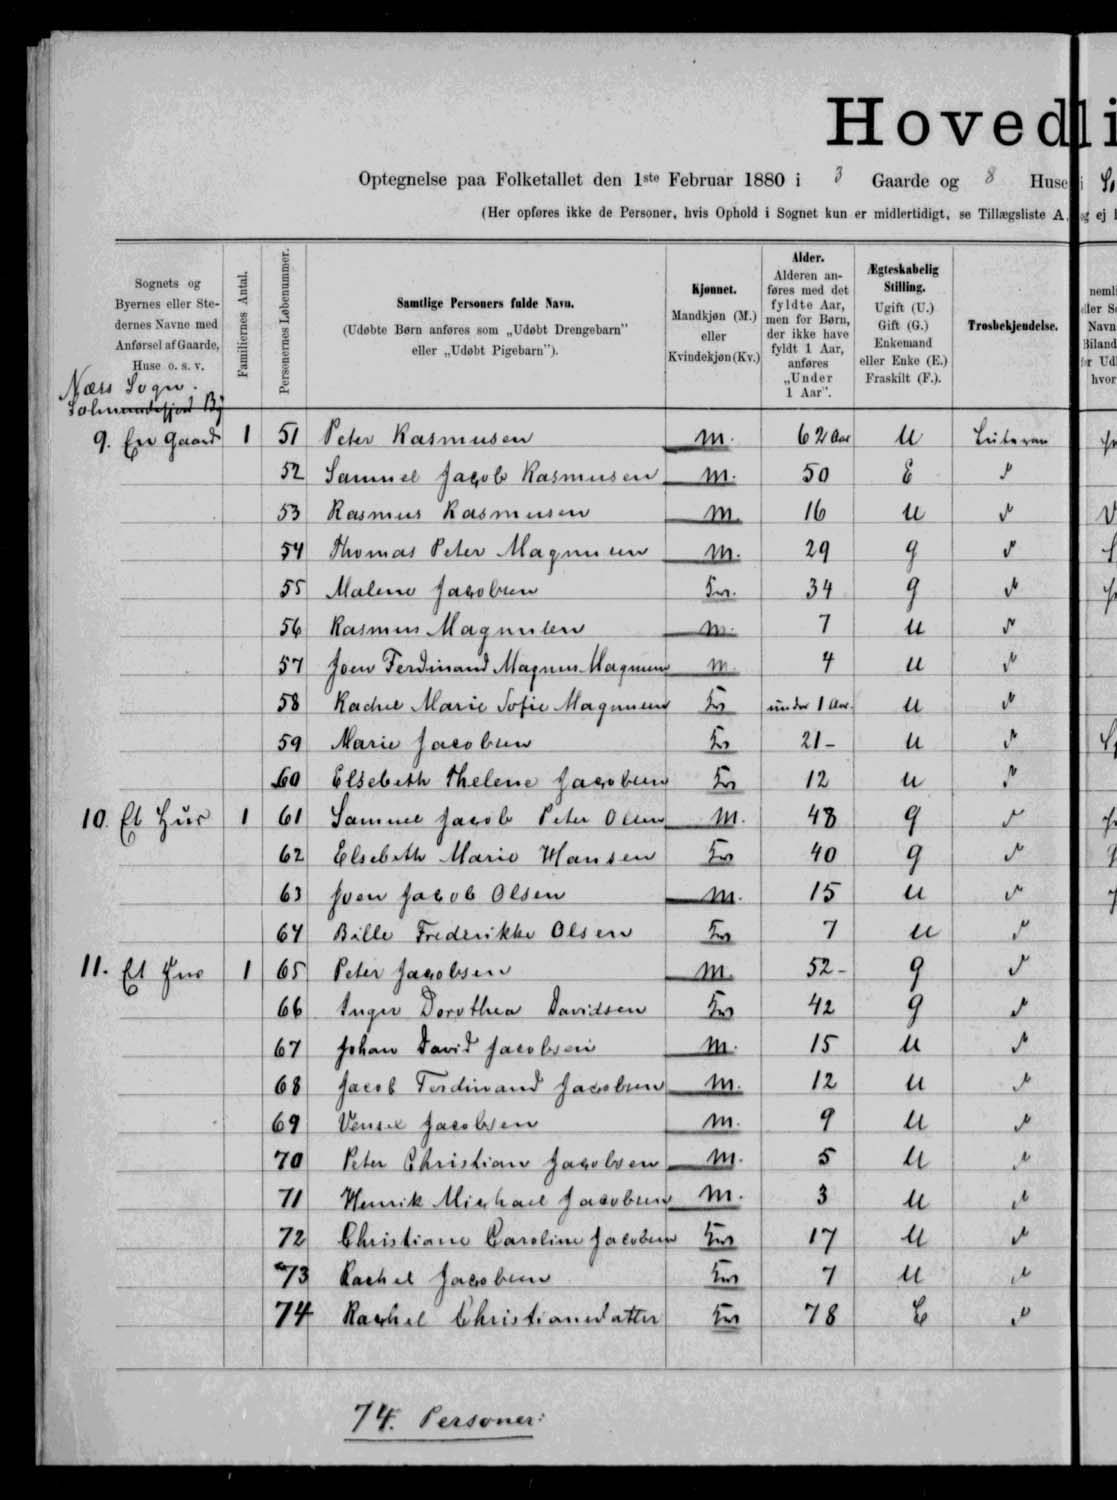 Hovedli
Optegnelse paa Folketallet den 1ste Februar 1880 i 3 Gaarde og 8 Huse i
(Her opføres ikke de Personer, hvis Ophold i Sognet kun er midlertidigt, se Tillægsliste A, og ej
Sognets og Byernes eller Stedernes Navne med Anførsel af Gaarde, Huse o. s. v.
Familiernes Antal.
Personernes Løbenummer.
Samtlige Personers fulde Navn.
(Udøbte Børn anføres som „Udøbt Drengebarn"
eller „Udøbt Pigebarn").
Kjønnet.
Mandkjøn (M.)
eller
Kvindekjøn (Kv.)
Alder.
Alderen anføres med det fyldte Aar, men for Børn, der ikke have fyldt 1 Aar, anføres „Under 1 Aar".
Ægteskabelig Stilling.
Ugift (U.)
Gift (G.)
Enkemand eller Enke (E.)
Fraskilt (F.).
Trosbekjendelse.
Næs Sogn.
9. En Gaard 1 51 Peter Rasmusen M. 62 Aar U Luteran
52 Samuel Jacob Rasmusen M. 50 E
53 Rasmus Rasmusen M. 16 U
54 Thomas Peter Magnusen M. 29 G
55 Malene Jacobsen Kv. 34 G
56 Rasmus Magnusen M. 7 U
57 Joen Ferdinand Magnus Magnusen M. 4 U
58 Rachel Marie Sofie Magnusen Kv under 1 Aar. U
59 Marie Jacobsen Kv 21- U
60 Elsebeth Thelene Jacobsen Kv 12 U
10. Et Hus 1 61 Samuel Jacob Peter Olsen M. 48 G
62 Elsebeth Marie Hansen Kv 40 G
63 Joen Jacob Olsen M. 15 U
64 Bille Frederikke Olsen Kv 7 U
11. Et Hus 1 65 Peter Jacobsen M. 52- G
66 Inger Dorothea Davidsen Kv 42 G
67 Johan David Jacobsen M. 15 U
68 Jacob Ferdinand Jacobsen M. 12 U
69 Jacobsen M. 9 U
70 Peter Christian Jacobsen M. 5 U
71 Henrik Michael Jacobsen M. 3 U
72 Christiane Caroline Jacobsen Kv 17 U
73 Rachel Jacobsen Kv 7 U
74 Rachel Christiansdatter Kv 78 E
74. Personer: